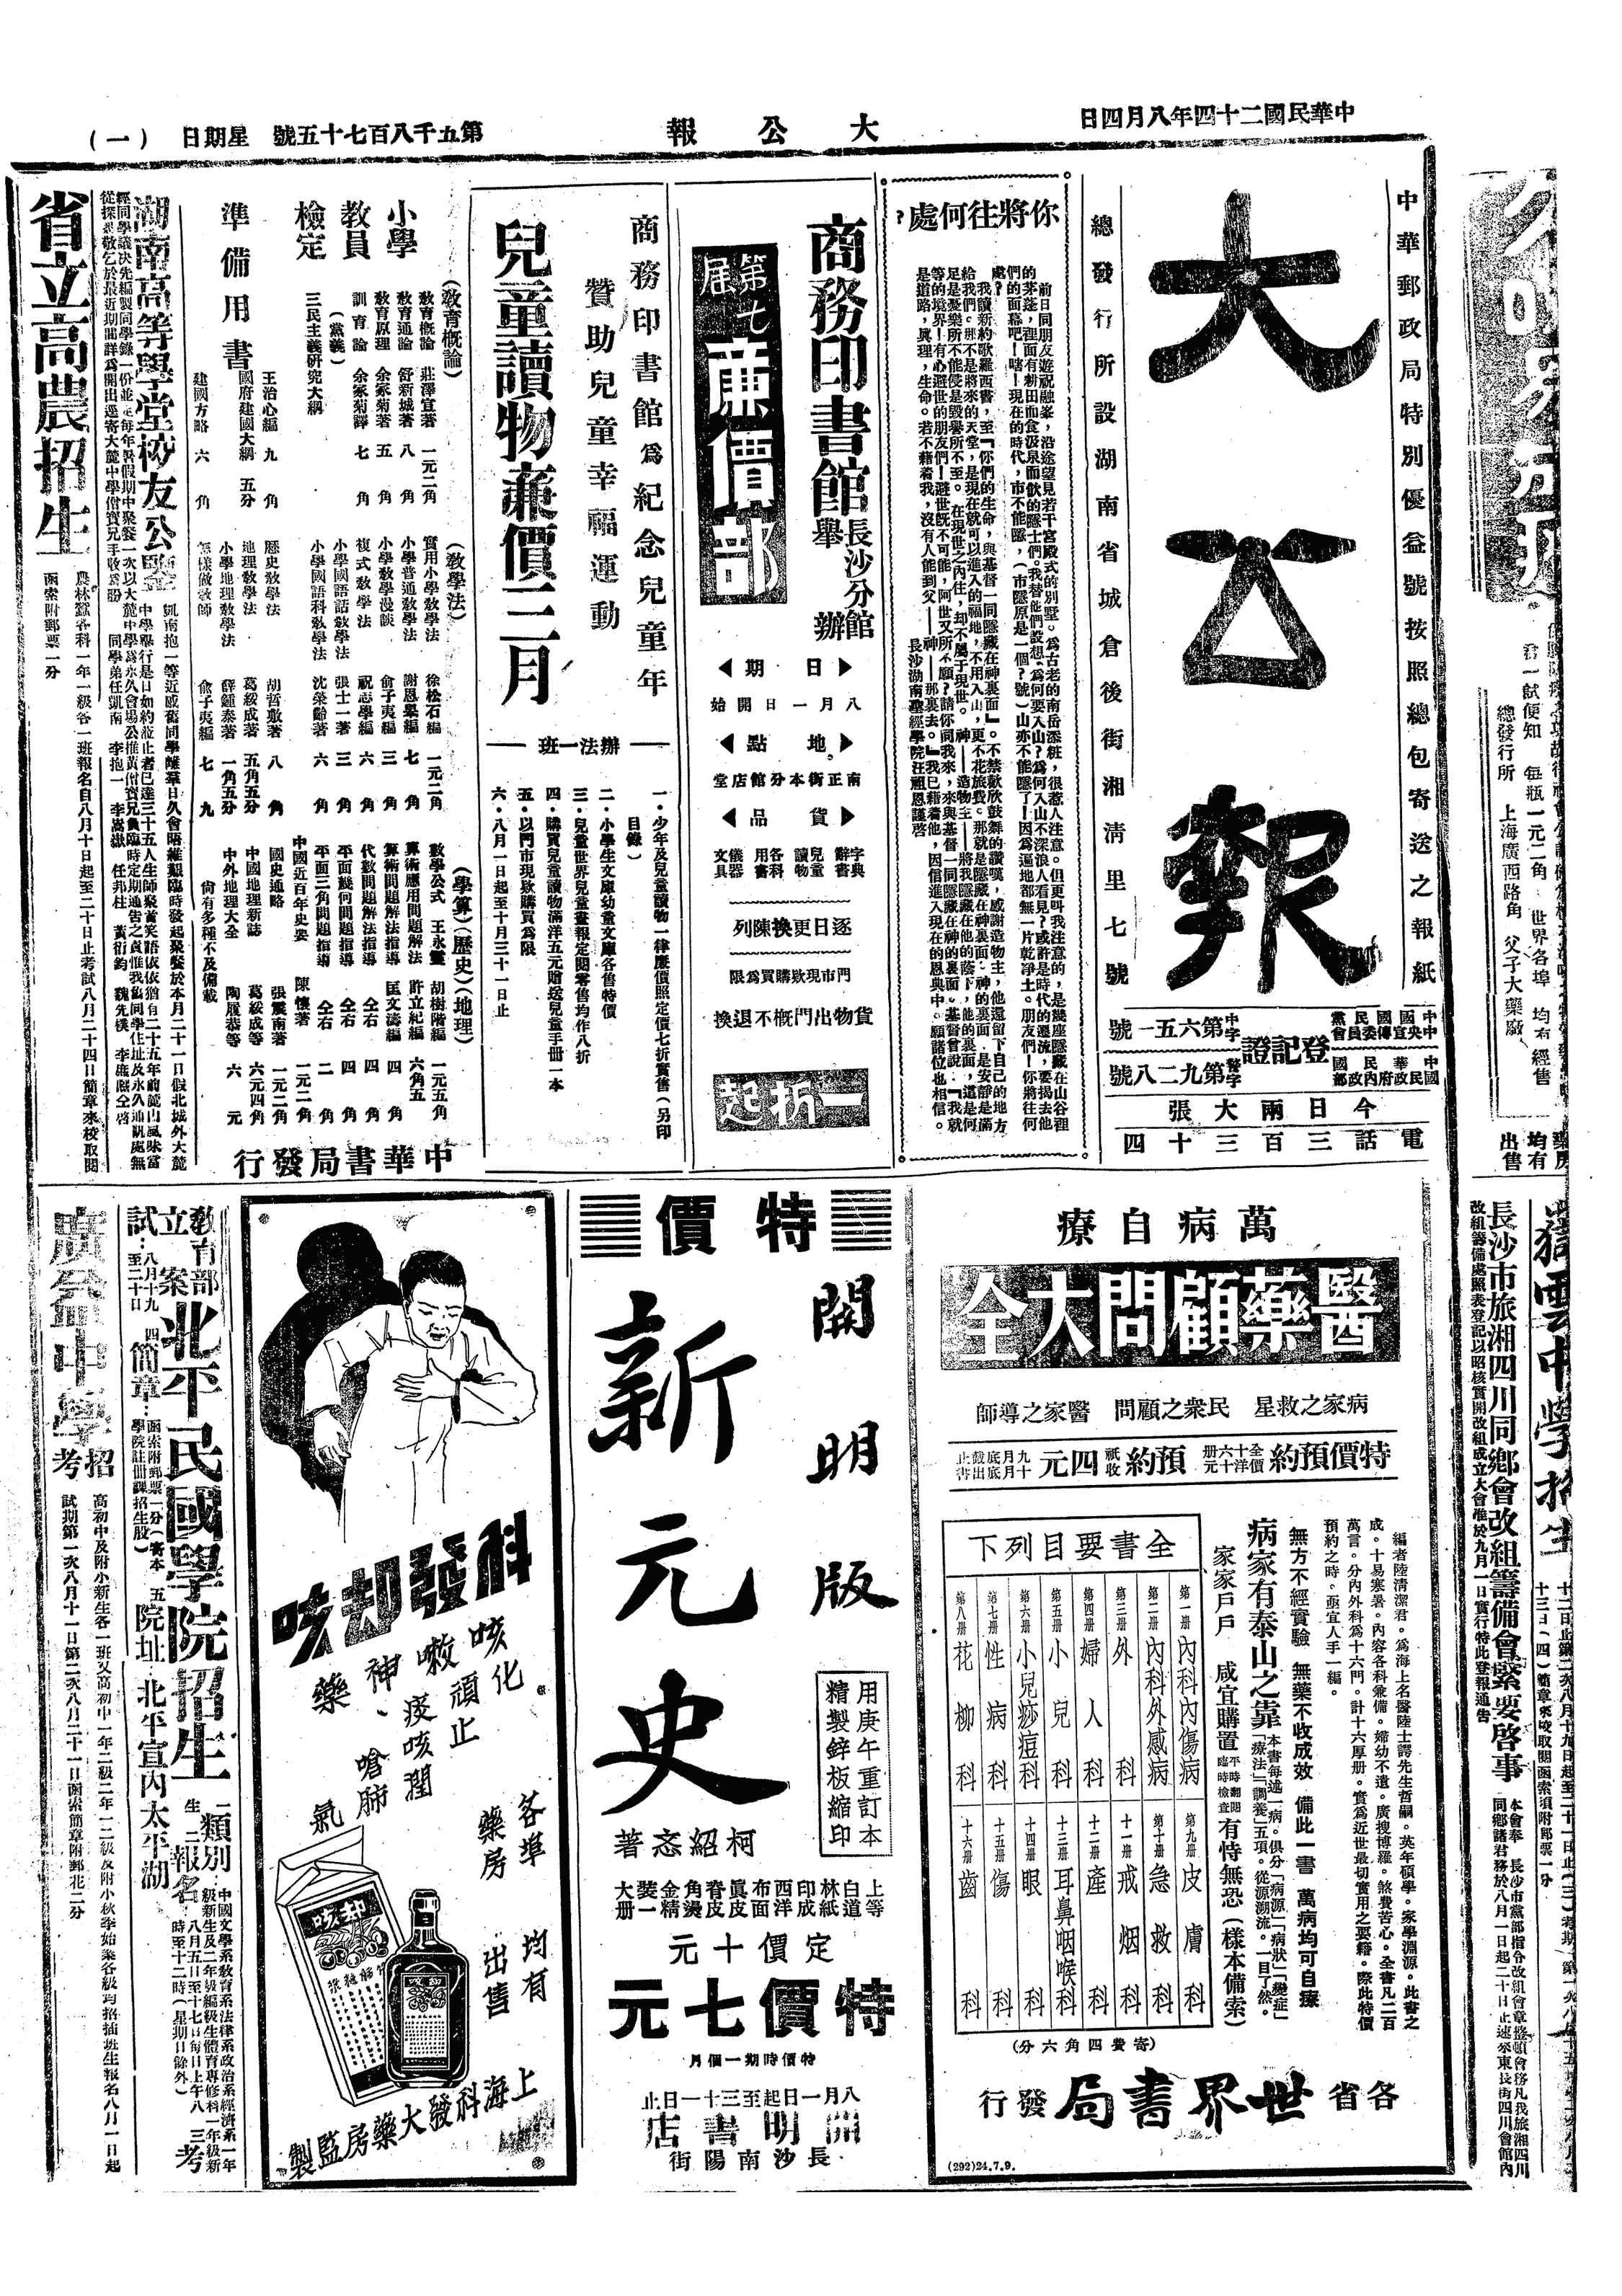 中華民國二十四年八月四日
大公報
第五千八百七十五號 星期日
(一)
中華郵政局特別優益號按照總包寄送之報紙
大公報
總發行所設湖南省城倉後街湘清里七號
登記證
中字第六五一號
警字第九二八號
今日兩大張
電話三百三十四
你將往何處?
前日同朋友遊祝融峯,沿途望見若干宮殿式的別墅。為古老的南岳添粧,很惹人注意。但更叫我注意的,是幾座隱藏在山谷裡
的茅蓬,裡面有耕田而食汲泉而飲的隱士們。我替他們設想,為何要入山?為何入山不深浪人看見?或許是時代的遷流,要揭去他
們的面幕吧!嗐!現在的時代,市不能隱,(市隱原是一個?號)山亦不能隱了!因為遍地都無一片乾净土。朋友們!你將往何
處?
我讀新約歌羅西書,至『你們的生命,與基督一同隱藏在神裏面』。不禁歡欣鼓舞的讚嘆,感謝造物主,他還留下自己的地方
給我們。那不是將來的天堂,是現在就可以進入的福地,不用入山,更不花旅費。那就是隱藏在神裏面。神的裏面,是安靜是滿
足是憂樂所不能侵是毀譽所不至。在現世之內住,却不屬于現世。神——造物主——將我隱藏在他的蔭下,他的裏面,這是何
等的境界!有心避世的朋友們!避世既不可能,阿世又所不願?請你同我來,來與基督一同隱藏在神的裏面。基督曾說:『我就
是道路,真理,生命。若不藉着我,沒有人能到父——神——那裏去。』我已藉着他,因信進入現在的恩典中。願諸位也相信。
長沙湖南聖經學院汪祖恩謹啓
商務印書館長沙分館舉辦
第七屆廉價部
日期
八月一日開始
地點
南正街本分館店堂
貨品
字典辭書 兒童讀物 各科用書 儀器文具
逐日更換陳列
門市現欵購買為限
貨物出門概不退換
一折起
商務印書館為紀念兒童年
贊助兒童幸福運動
兒童讀物廉價三月
辦法一班
一・少年及兒童讀物一律廉價照定價七折實售(另印
目錄)
二・小學生文庫幼童文庫各售特價
三・兒童世界兒童畫報定閱零售均作八折
四・購買兒童讀物滿洋五元贈送兒童手册一本
五・以門市現欵購買為限
六・八月一日起至十月三十一日止
小學教員檢定準備用書
(教育概論)
教育概論 莊澤宣著 一元二角
教育通論 舒新城著 八角
教育原理 余家菊著 五角
訓育論 余家菊譯 七角
(黨義)
三民主義研究大綱
王治心編 九角
國府建國大綱 五分
建國方略 六角
(教學法)
實用小學教學法 徐松石編 一元二角
小學普通教學法 謝恩皋編 七角
小學教學漫談 俞子夷編 三角
複式教學法 祝志學編 六角
小學國語話教學法 張士一著 三角
小學國語科教學法 沈榮齡著 六角
歷史教學法 胡哲敷著 八角
地理教學法 葛綏成著 五角五分
小學地理教學法 薛鍾泰著 一角五分
怎樣做教師 俞子夷編 七角
(學算)(歷史)(地理)
數學公式 胡樹楷編 一元五角
算術應用問題解法 許立紀編 六角五
算術問題解法指導 匡文濤編 四角
代數問題解法指導 仝右 四角
平面幾何問題指導 仝右 四角
平面三角問題指導 仝右 二角
中國近百年史要 陳懷著 一元二角
國史通略 張震南著 一元二角
中國地理新誌 葛綏成等 六元四角
中外地理大全 陶履恭等 六元
尚有多種不及備載
中華書局發行
湖南高等學堂校友公鑒
省立高農招生
農林蠶各科一年一級各一班報名自八月十日起至二十日止考試八月二十四日簡章來校取閱
函索附郵票一分
萬病自療
醫藥顧問大全
病家之救星 民衆之顧問 醫家之導師
特價預約 全十六册價洋十六元 預約祇收四元 九月底截止十月底出書
編者陸清潔君。為海上名醫陸士諤先生哲嗣。英年碩學。家學淵源。此書之
成。十易寒暑。內容各科兼備。婦幼不遺。廣搜博羅。煞費苦心。全書凡二百
萬言。分內外科為十六門。計十六厚册。實為近世最切實用之要籍。際此特價
預約之時。亟宜人手一編。
無方不經實驗 無藥不收成效 備此一書 萬病均可自療
病家有泰山之靠 本書每述一病。俱分「病源」「病狀」「變症」「療法」「調養」五項。從源溯流。一目了然。
家家戶戶 咸宜購置 平時翻閱臨時檢查 有恃無恐(樣本備索)
全書要目列下
第一册 內科內傷病
第二册 內科外感病
第三册 外科
第四册 婦人科
第五册 小兒科
第六册 小兒痧痘科
第七册 性病科
第八册 花柳科
第九册 皮膚科
第十册 急救科
十一册 戒烟科
十二册 產科
十三册 耳鼻咽喉科
十四册 眼科
十五册 傷科
十六册 齒科
(寄費四角六分)
各省世界書局發行
(292)24.7.9.
特價
開明版
新元史
用庚午重訂本
精製鋅板縮印
柯紹忞著
上等白道林紙印成西洋布面真皮脊皮角燙金精裝一大册
定價十元
特價七元
特價時期一個月
八月一日起至三十一日止
開明書店
長沙南陽街
科發却咳
咳嗽神藥
化頑痰、
止咳
潤肺
嗆氣
各埠藥房
均有出售
上海科發大藥房監製
教育部立案北平民國學院招生
一類別:中國文學系教育系法律系政治系經濟系一年級新生及二年級編級生體育專修科一年級新生
二報名:八月五日至十七日每日上午八時至十二時(星期日餘外)
三考試:八月十九至二十日
四簡章:函索附郵票一分(寄本學院註册課招生股)
五院址:北平宣內太平湖
廣益中學招考
高初中及附小新生各一班又高初中一年二級二年一二級及附小秋季始業各級均招插班生報名八月一日起
試期第一次八月十一日第二次八月二十一日函索簡章附郵花二分
每瓶一元二角
總發行所 上海廣西路角 父子大藥廠
世界各埠 均有經售
藥房均有出售
嶽雲中學招生
長沙市旅湘四川同鄉會改組籌備會緊要啓事